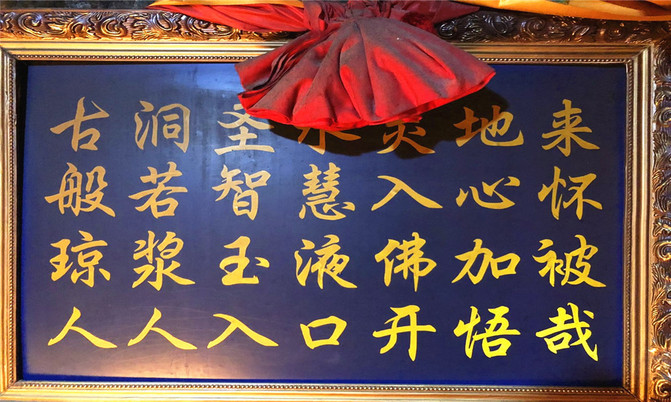 古洞圣水灵地来
般若智慧入心怀
琼浆玉液佛加被
人人入口开悟哉